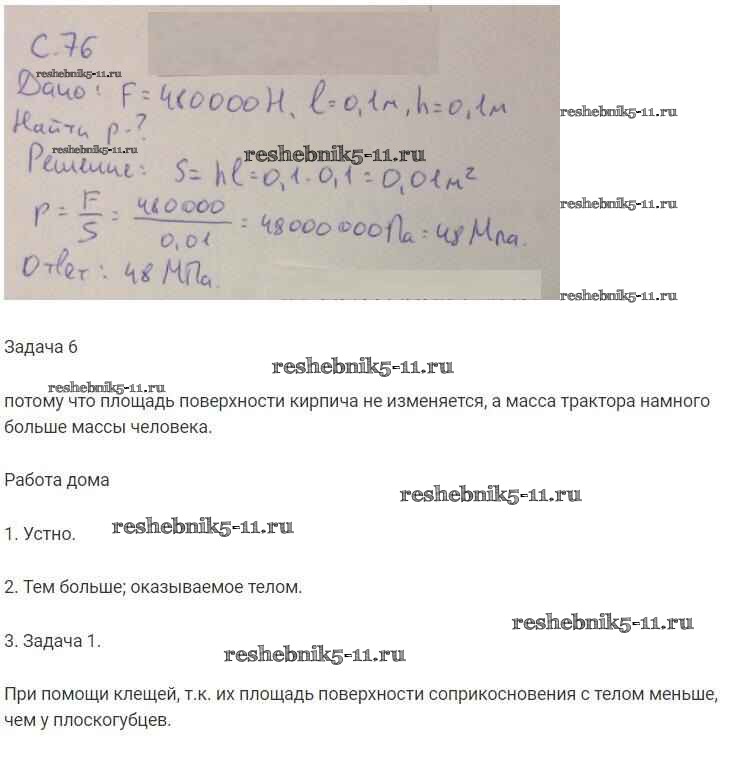 С. 76
reshebnik5-11.ru
Дано: F = 480000Н, l = 0,1м, h = 0,1м
reshebnik5-11.ru
Найти p - ?
reshebnik5-11.ru
reshebnik5-11.ru
Решение: S = hl = 0,1 · 0,1 = 0,01м²
reshebnik5-11.ru
p = F/S = 480000/0,01 = 48000000Па = 48Мпа.
Ответ: 48 МПа.
reshebnik5-11.ru
Задача 6
reshebnik5-11.ru
reshebnik5-11.ru
потому что площадь поверхности кирпича не изменяется, а масса трактора намного
больше массы человека.
Работа дома
reshebnik5-11.ru
reshebnik5-11.ru
1. Устно.
2. Тем больше; оказываемое телом.
reshebnik5-11.ru
3. Задача 1.
reshebnik5-11.ru
При помощи клещей, т.к. их площадь поверхности соприкосновения с телом меньше,
чем у плоскогубцев.